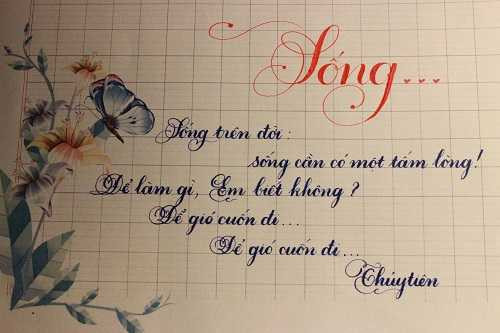 Sống...
Sống trên đời:
sống cần có một tấm lòng!
Để làm gì, Em biết không?
Để gió cuốn đi...
Để gió cuốn đi...
Thúytiên